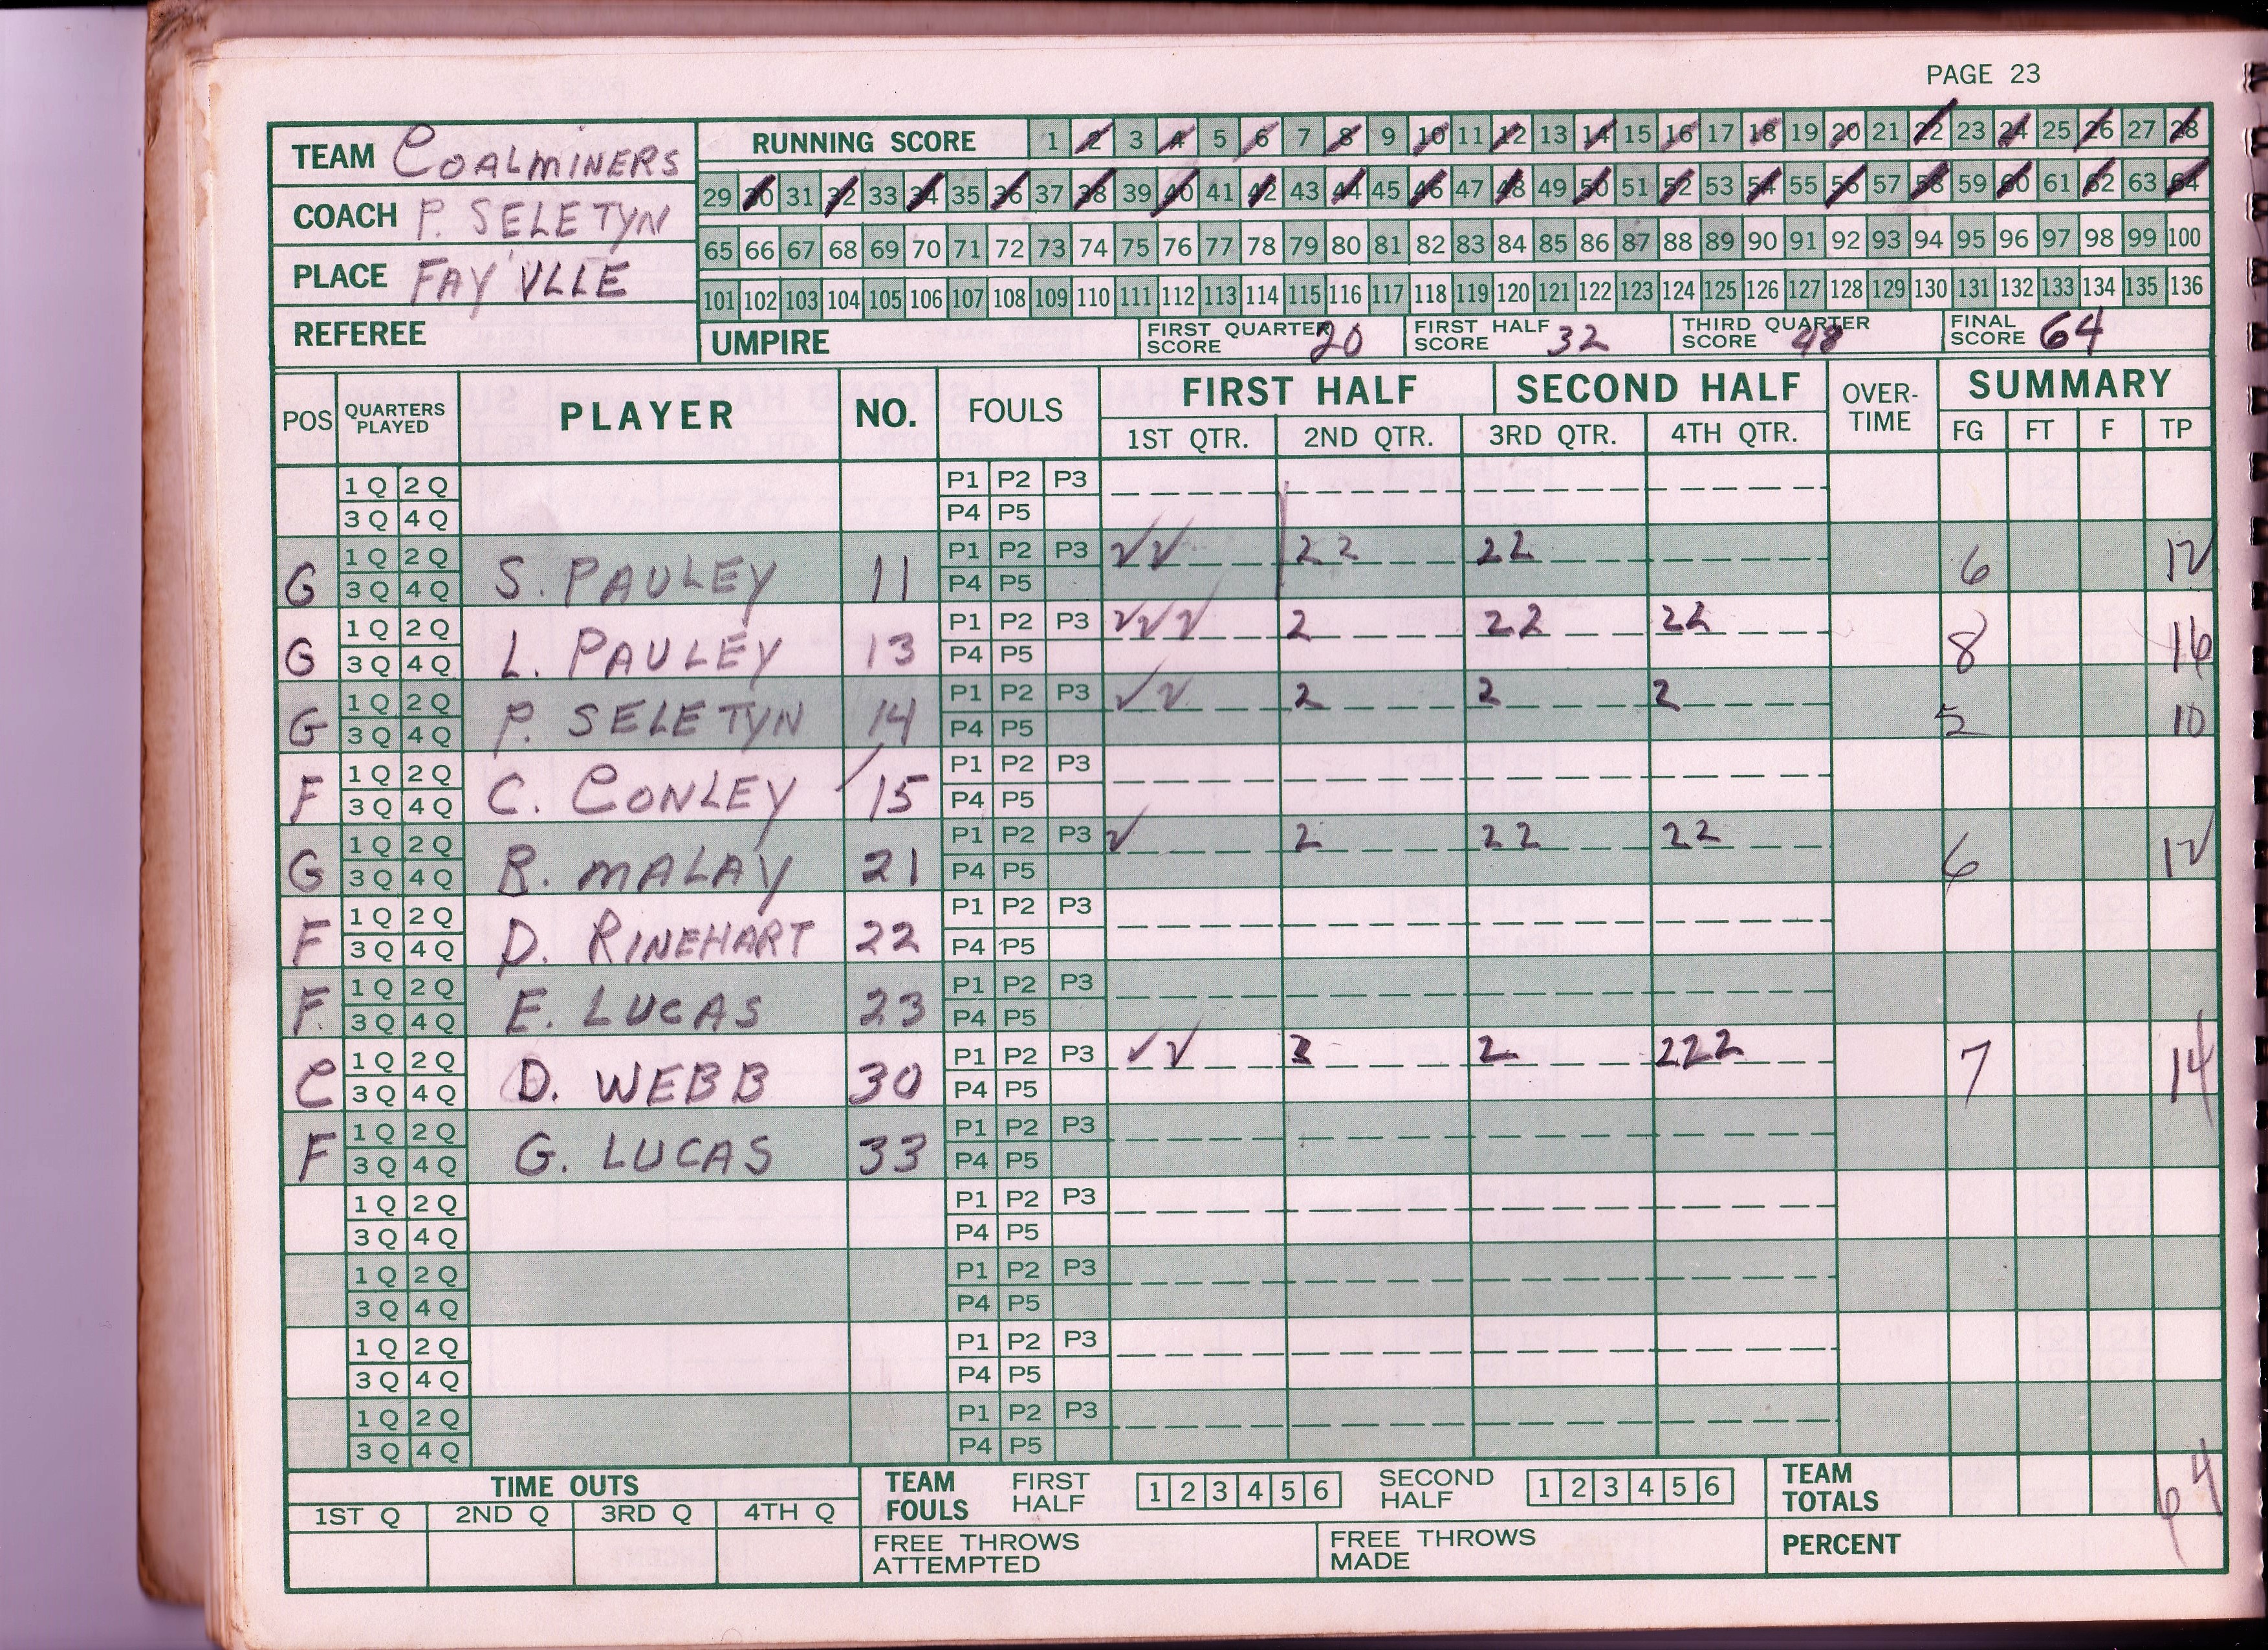 PAGE 23
TEAM COALMINERS
RUNNING SCORE 1 2 3 4 5 6 7 8 9 10 11 12 13 14 15 16 17 18 19 20 21 22 23 24 25 26 27 28
29 30 31 32 33 34 35 36 37 38 39 40 41 42 43 44 45 46 47 48 49 50 51 52 53 54 55 56 57 58 59 60 61 62 63 64
COACH P. SELETYN
65 66 67 68 69 70 71 72 73 74 75 76 77 78 79 80 81 82 83 84 85 86 87 88 89 90 91 92 93 94 95 96 97 98 99 100
PLACE FAY'VLLE
101 102 103 104 105 106 107 108 109 110 111 112 113 114 115 116 117 118 119 120 121 122 123 124 125 126 127 128 129 130 131 132 133 134 135 136
REFEREE UMPIRE FIRST QUARTER SCORE 20 FIRST HALF SCORE 32 THIRD QUARTER SCORE 48 FINAL SCORE 64
POS QUARTERS PLAYED PLAYER NO. FOULS FIRST HALF SECOND HALF OVER-TIME SUMMARY
1ST QTR. 2ND QTR. 3RD QTR. 4TH QTR. FG FT F TP
1 Q 2 Q P1 P2 P3
3 Q 4 Q P4 P5
1 Q 2 Q P1 P2 P3 ✓✓ 2 2 2 2
G 3 Q 4 Q S. PAULEY 11 P4 P5 6 12
1 Q 2 Q P1 P2 P3 ✓✓✓ 2 2 2 2 2
G 3 Q 4 Q L. PAULEY 13 P4 P5 8 16
1 Q 2 Q P1 P2 P3 ✓✓ 2 2 2
G 3 Q 4 Q P. SELETYN 14 P4 P5 5 10
1 Q 2 Q P1 P2 P3
F 3 Q 4 Q C. CONLEY 15 P4 P5
1 Q 2 Q P1 P2 P3 ✓ 2 2 2 2 2
G 3 Q 4 Q B. MALAY 21 P4 P5 6 12
1 Q 2 Q P1 P2 P3
F 3 Q 4 Q D. RINEHART 22 P4 P5
1 Q 2 Q P1 P2 P3
F. 3 Q 4 Q E. LUCAS 23 P4 P5
1 Q 2 Q P1 P2 P3 ✓✓ 2 2 2 2 2
C 3 Q 4 Q D. WEBB 30 P4 P5 7 14
1 Q 2 Q P1 P2 P3
F 3 Q 4 Q G. LUCAS 33 P4 P5
1 Q 2 Q P1 P2 P3
3 Q 4 Q P4 P5
1 Q 2 Q P1 P2 P3
3 Q 4 Q P4 P5
1 Q 2 Q P1 P2 P3
3 Q 4 Q P4 P5
1 Q 2 Q P1 P2 P3
3 Q 4 Q P4 P5
TIME OUTS TEAM FOULS FIRST HALF 1 2 3 4 5 6 SECOND HALF 1 2 3 4 5 6 TEAM TOTALS 64
1ST Q 2ND Q 3RD Q 4TH Q
FREE THROWS ATTEMPTED FREE THROWS MADE PERCENT